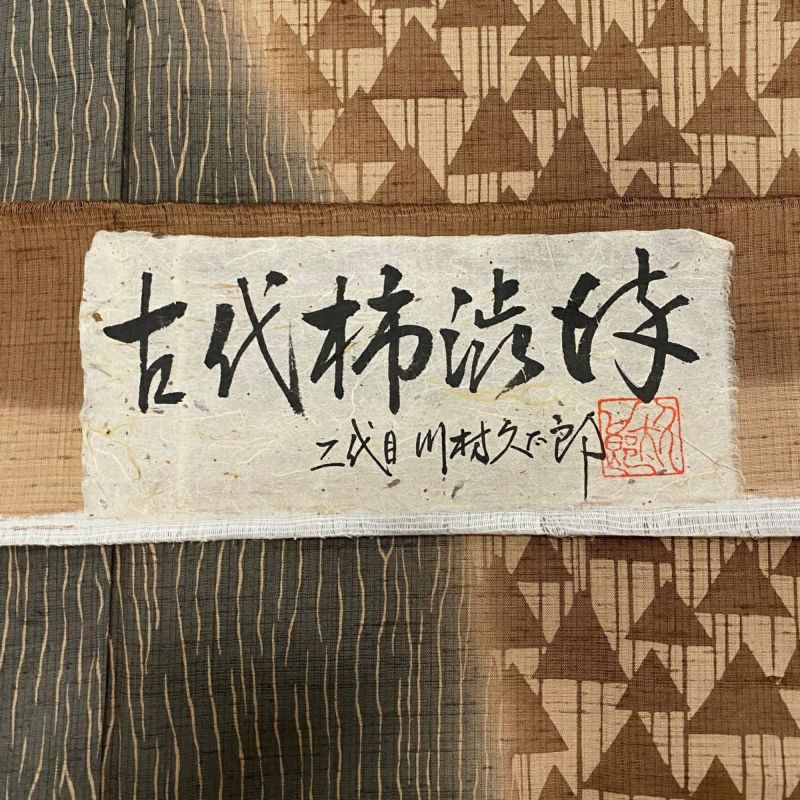 古代柿渋染
二代目 川村久太郎